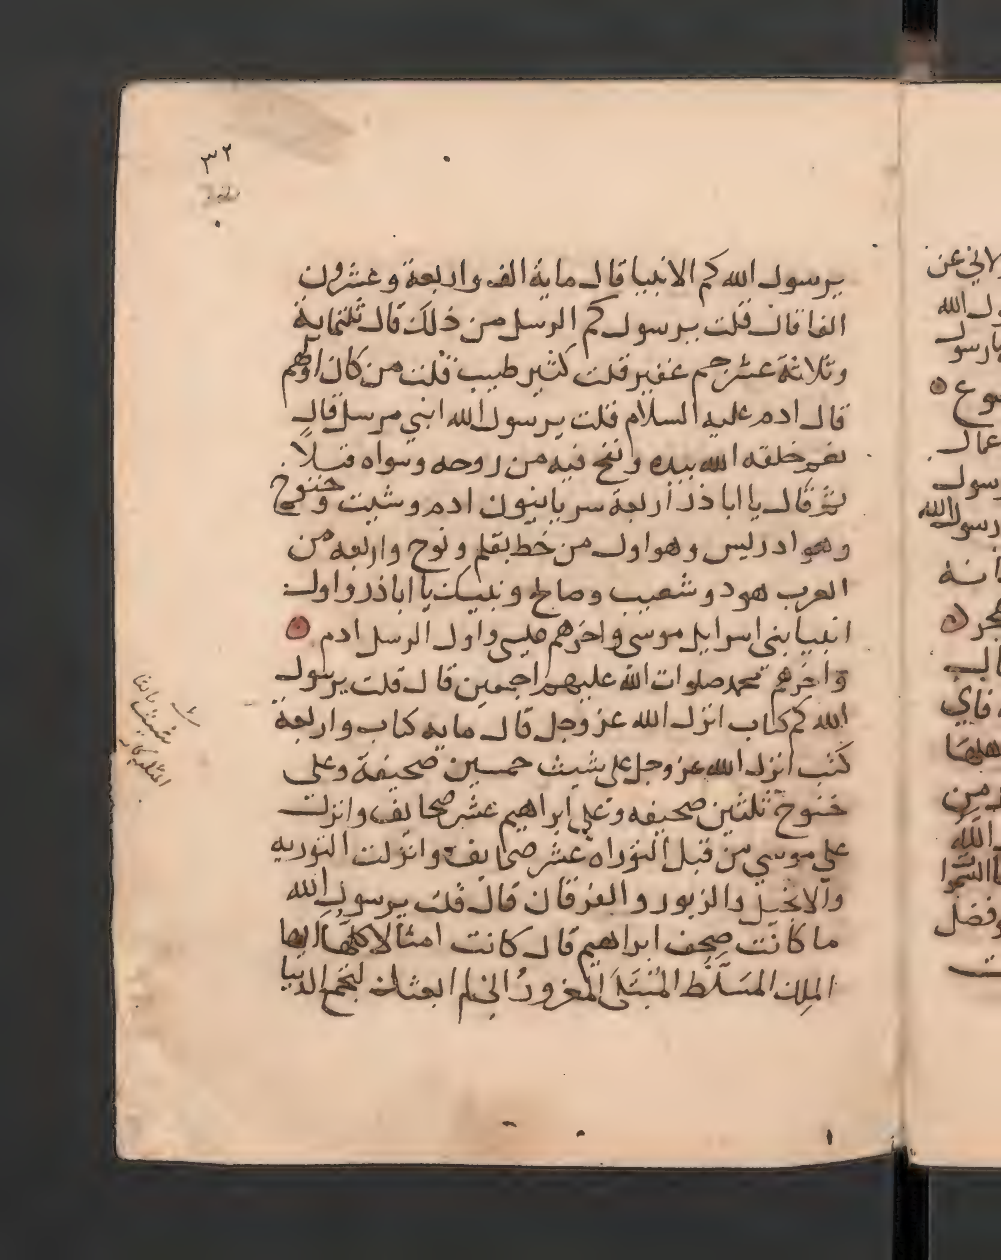 ٣٢
يرسول الله كم الانبيا قال ماية الف واربعة وعشرون
الفا قال قلت يرسول كم الرسل من ذلك قال ثلثماية
وثلاثة عشر جم غفير قلت كثير طيب قلت من كان اولهم
قال ادم عليه السلام قلت يرسول الله انبي مرسل قال
نعم خلقه الله بيده ونفخ فيه من روحه وسواه قبلا
ثم قال يا ابا ذر اربعة سريانيون ادم وشيث وخنوخ
وهو ادريس وهو اول من خط بقلم ونوح واربعه من
العرب هود وشعيب وصالح ونبيك يا اباذر واول
انبيا بني اسرايل موسى واخرهم عيسى واول الرسل ادم
واخرهم محمد صلوات الله عليهم اجمعين قال قلت يرسول
الله كم كتاب انزل الله عز وجل قال مايه كتاب واربعة
كتب انزل الله عز وجل على شيث خمسين صحيفة وعلى
خنوخ ثلثين صحيفه وعلى ابراهيم عشر صحايف وانزلت
على موسي من قبل التوراه عشر صحايف وانزلت التوريه
والانجيل والزبور والفرقان قال قلت يرسول الله
ما كانت صحف ابراهيم قال كانت امثالا كلها ايها
الملك المسلط المبتلى المغرور اني لم ابعثك لتجمع الدنيا
لاني عن
ول الله
يارسول
وع
عمال
رسول
رسول الله
فاي
من
الله
وفضل